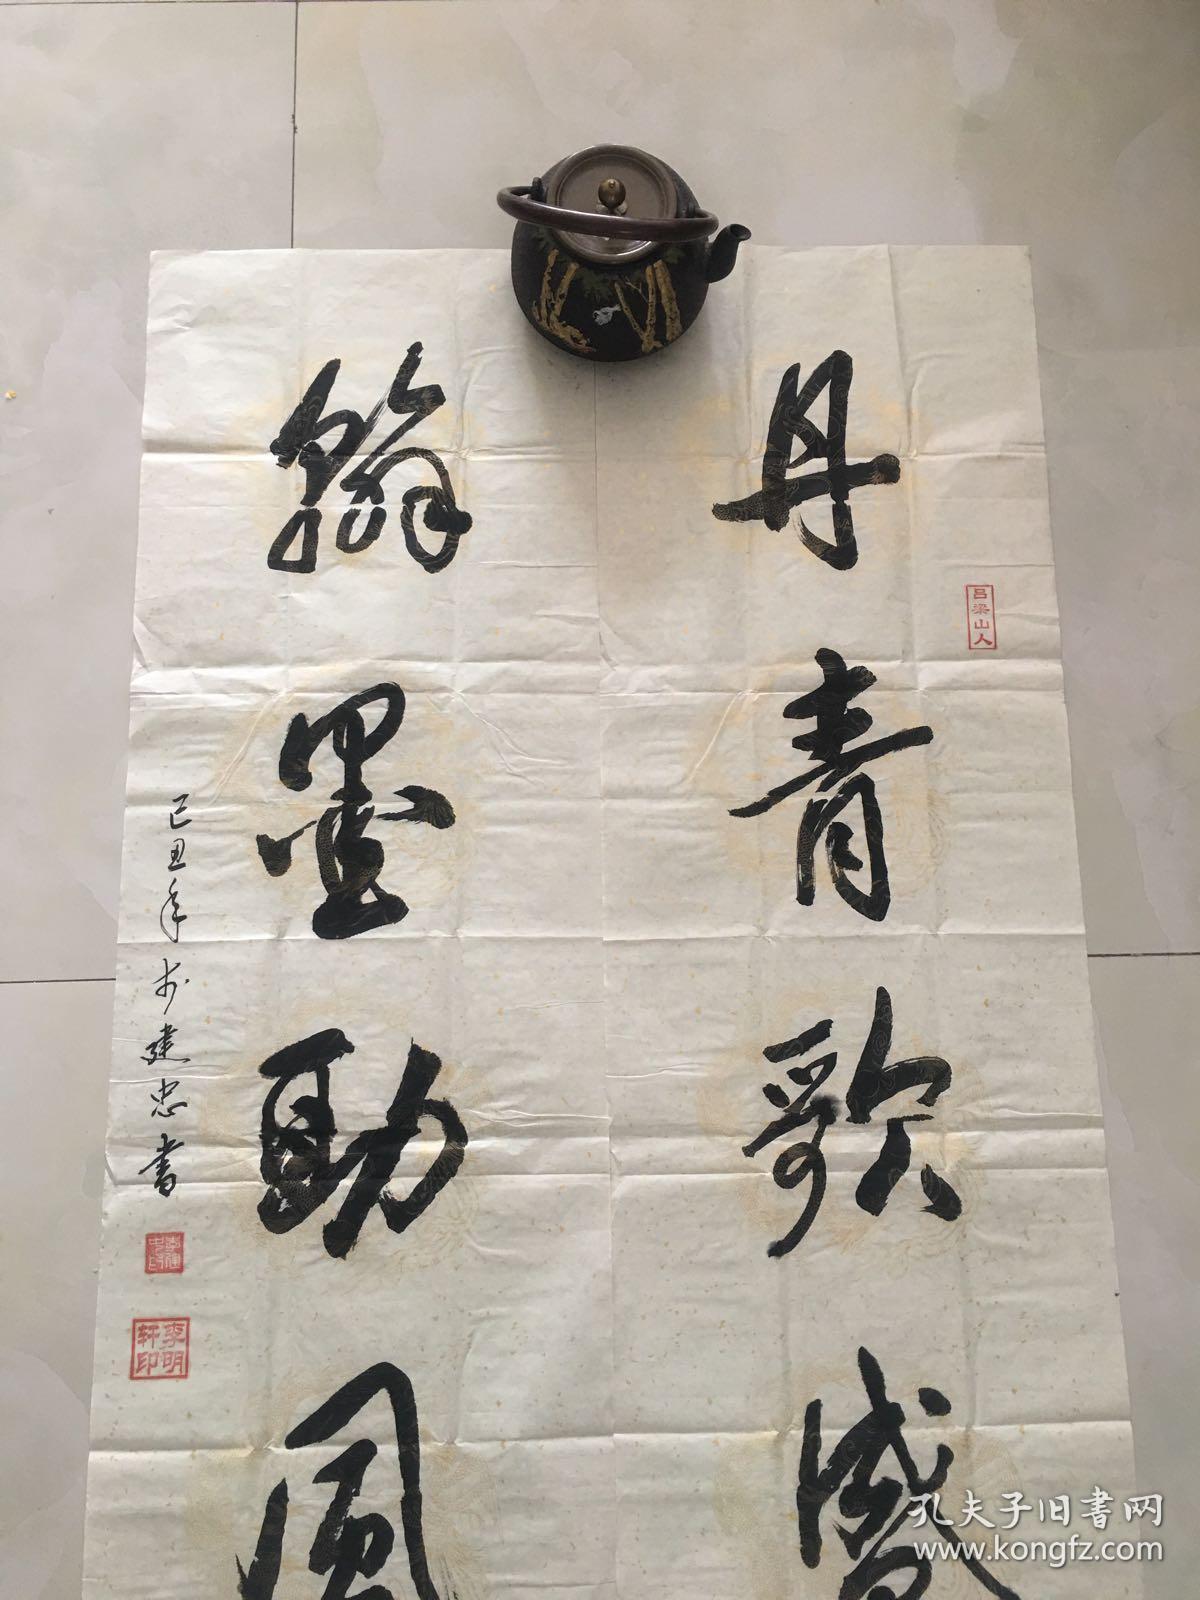 丹青歌盛
翰墨助风
己丑年 建忠书
吕梁山人
李建中印
李明轩印
孔夫子旧书网
www.kongfz.com